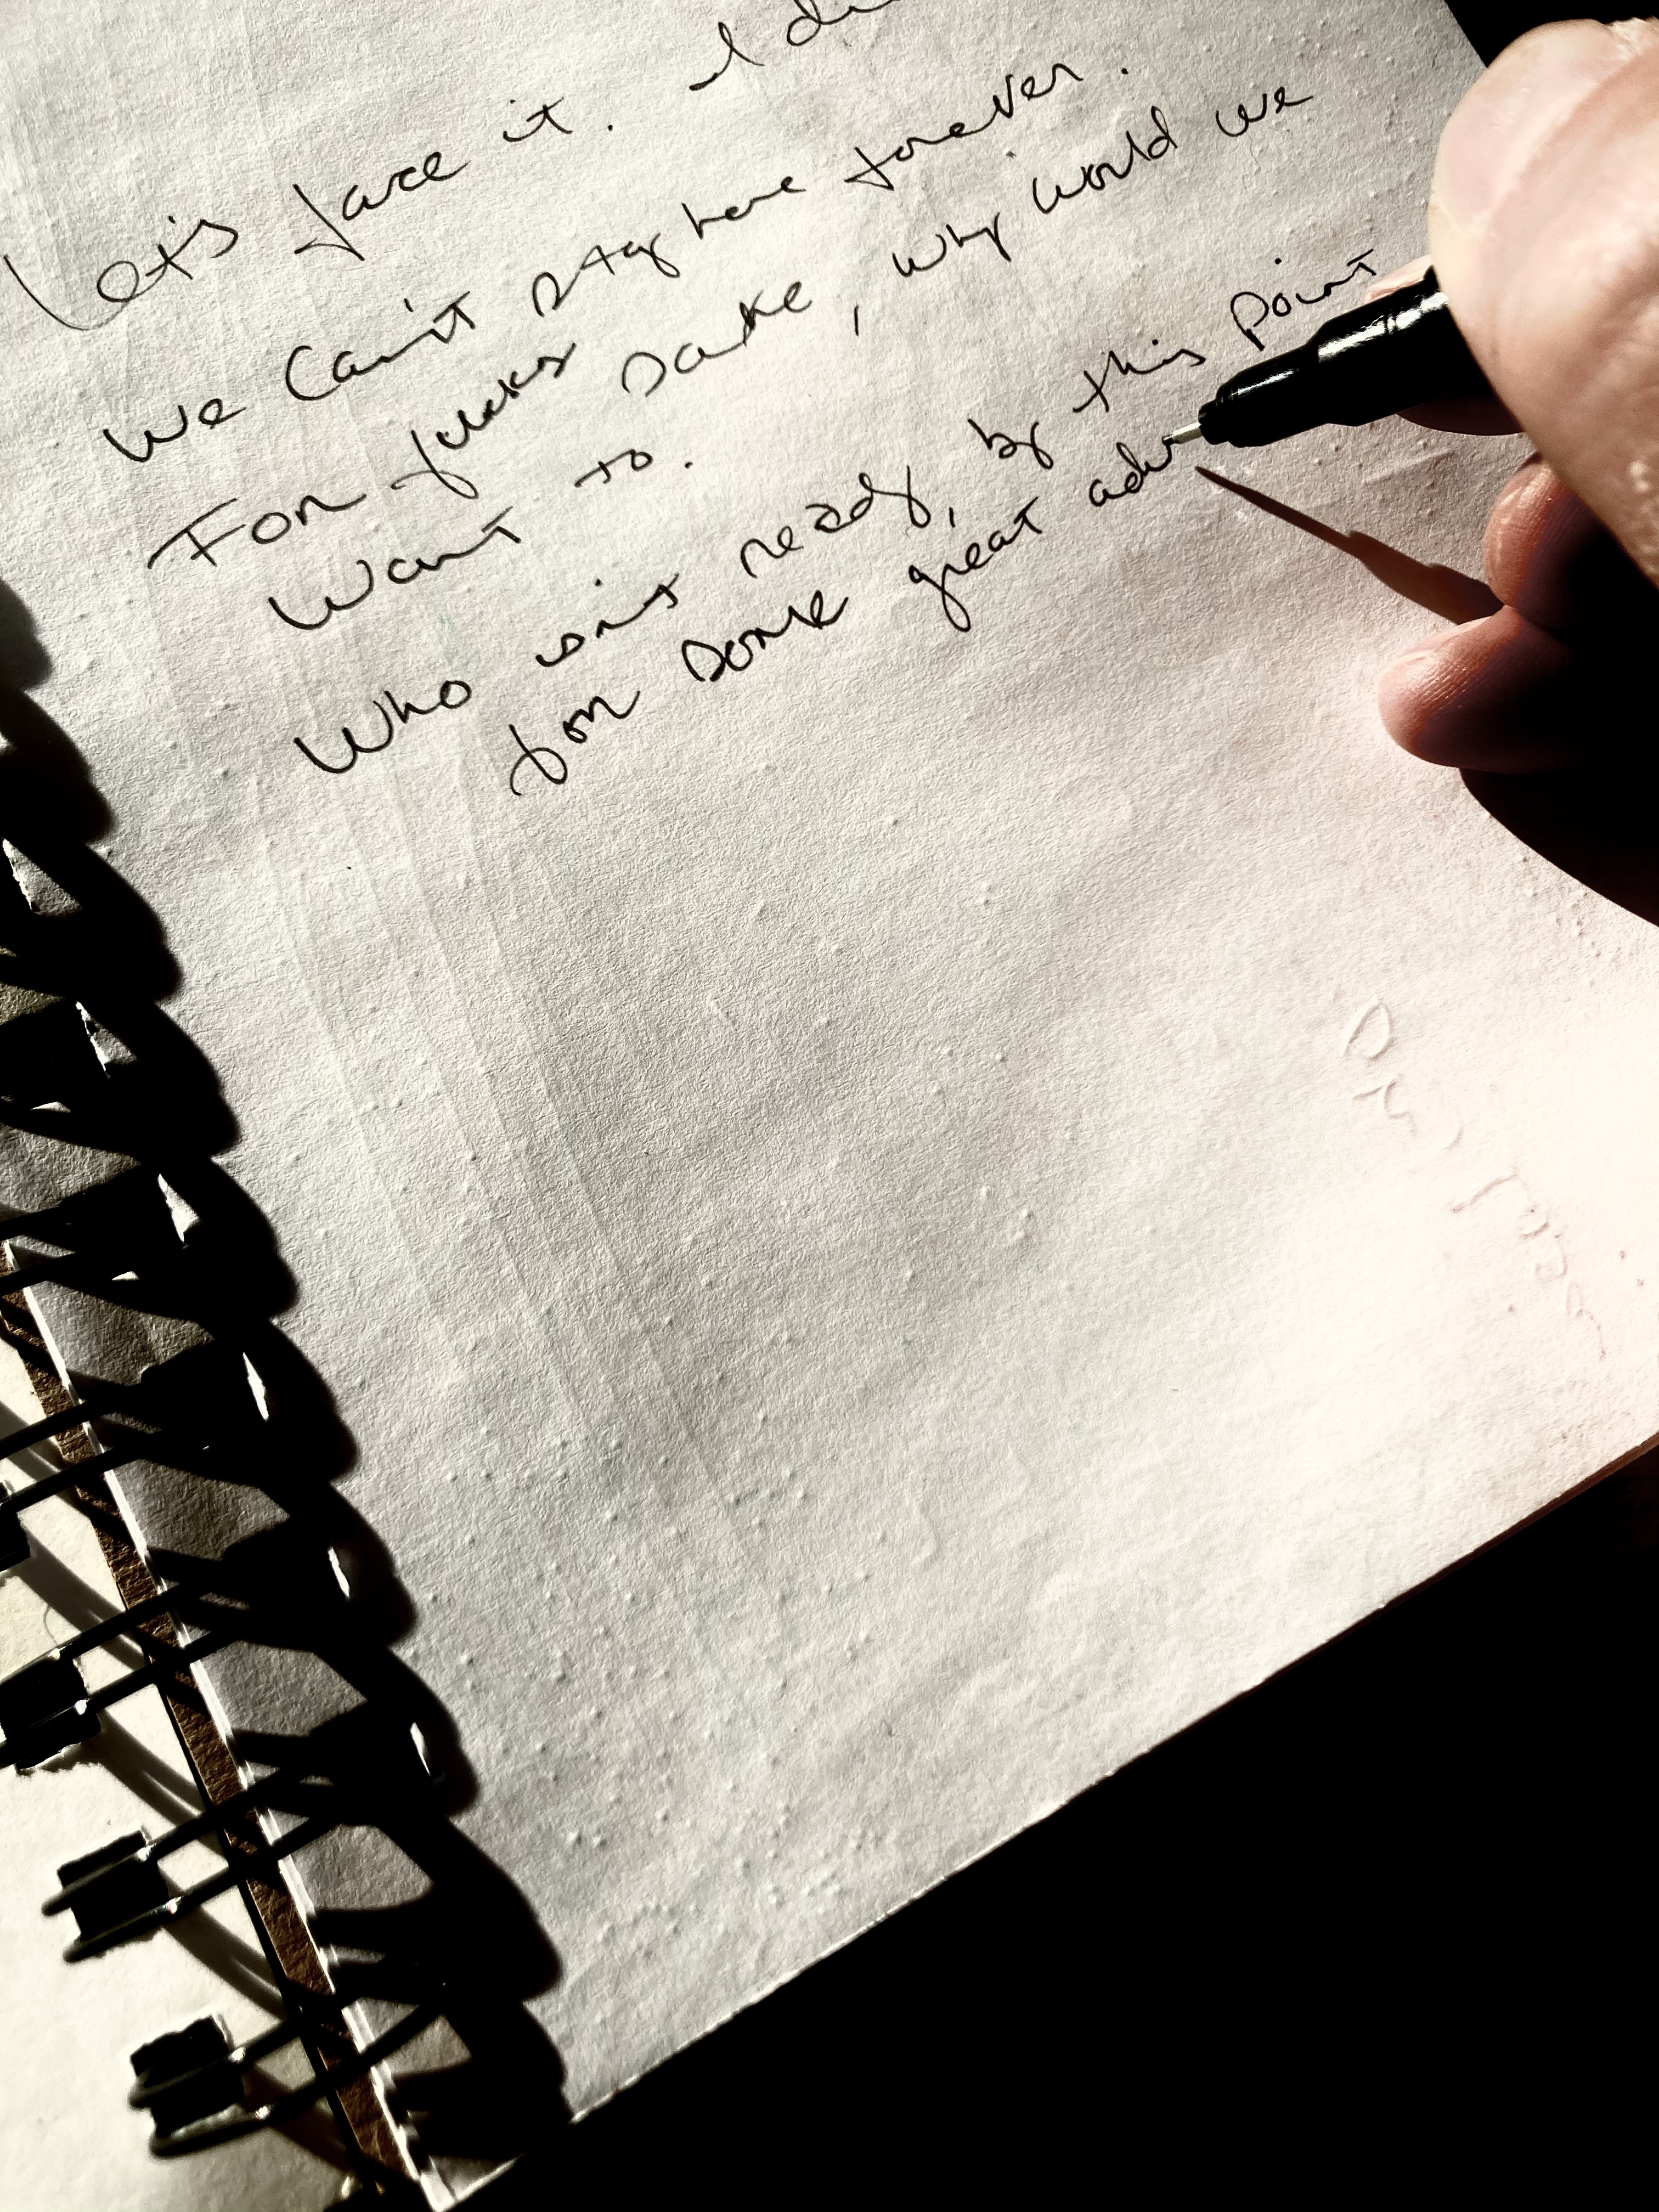 Let's face it. I
We can't stay here forever.
For fucks sake, why would we
want to.
Who isn't ready, by this point
for some great adv